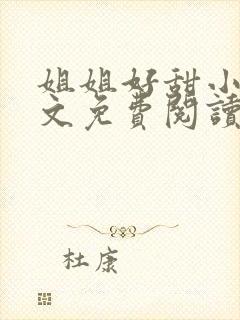 姐姐好甜小
文免費閱讀
杜康